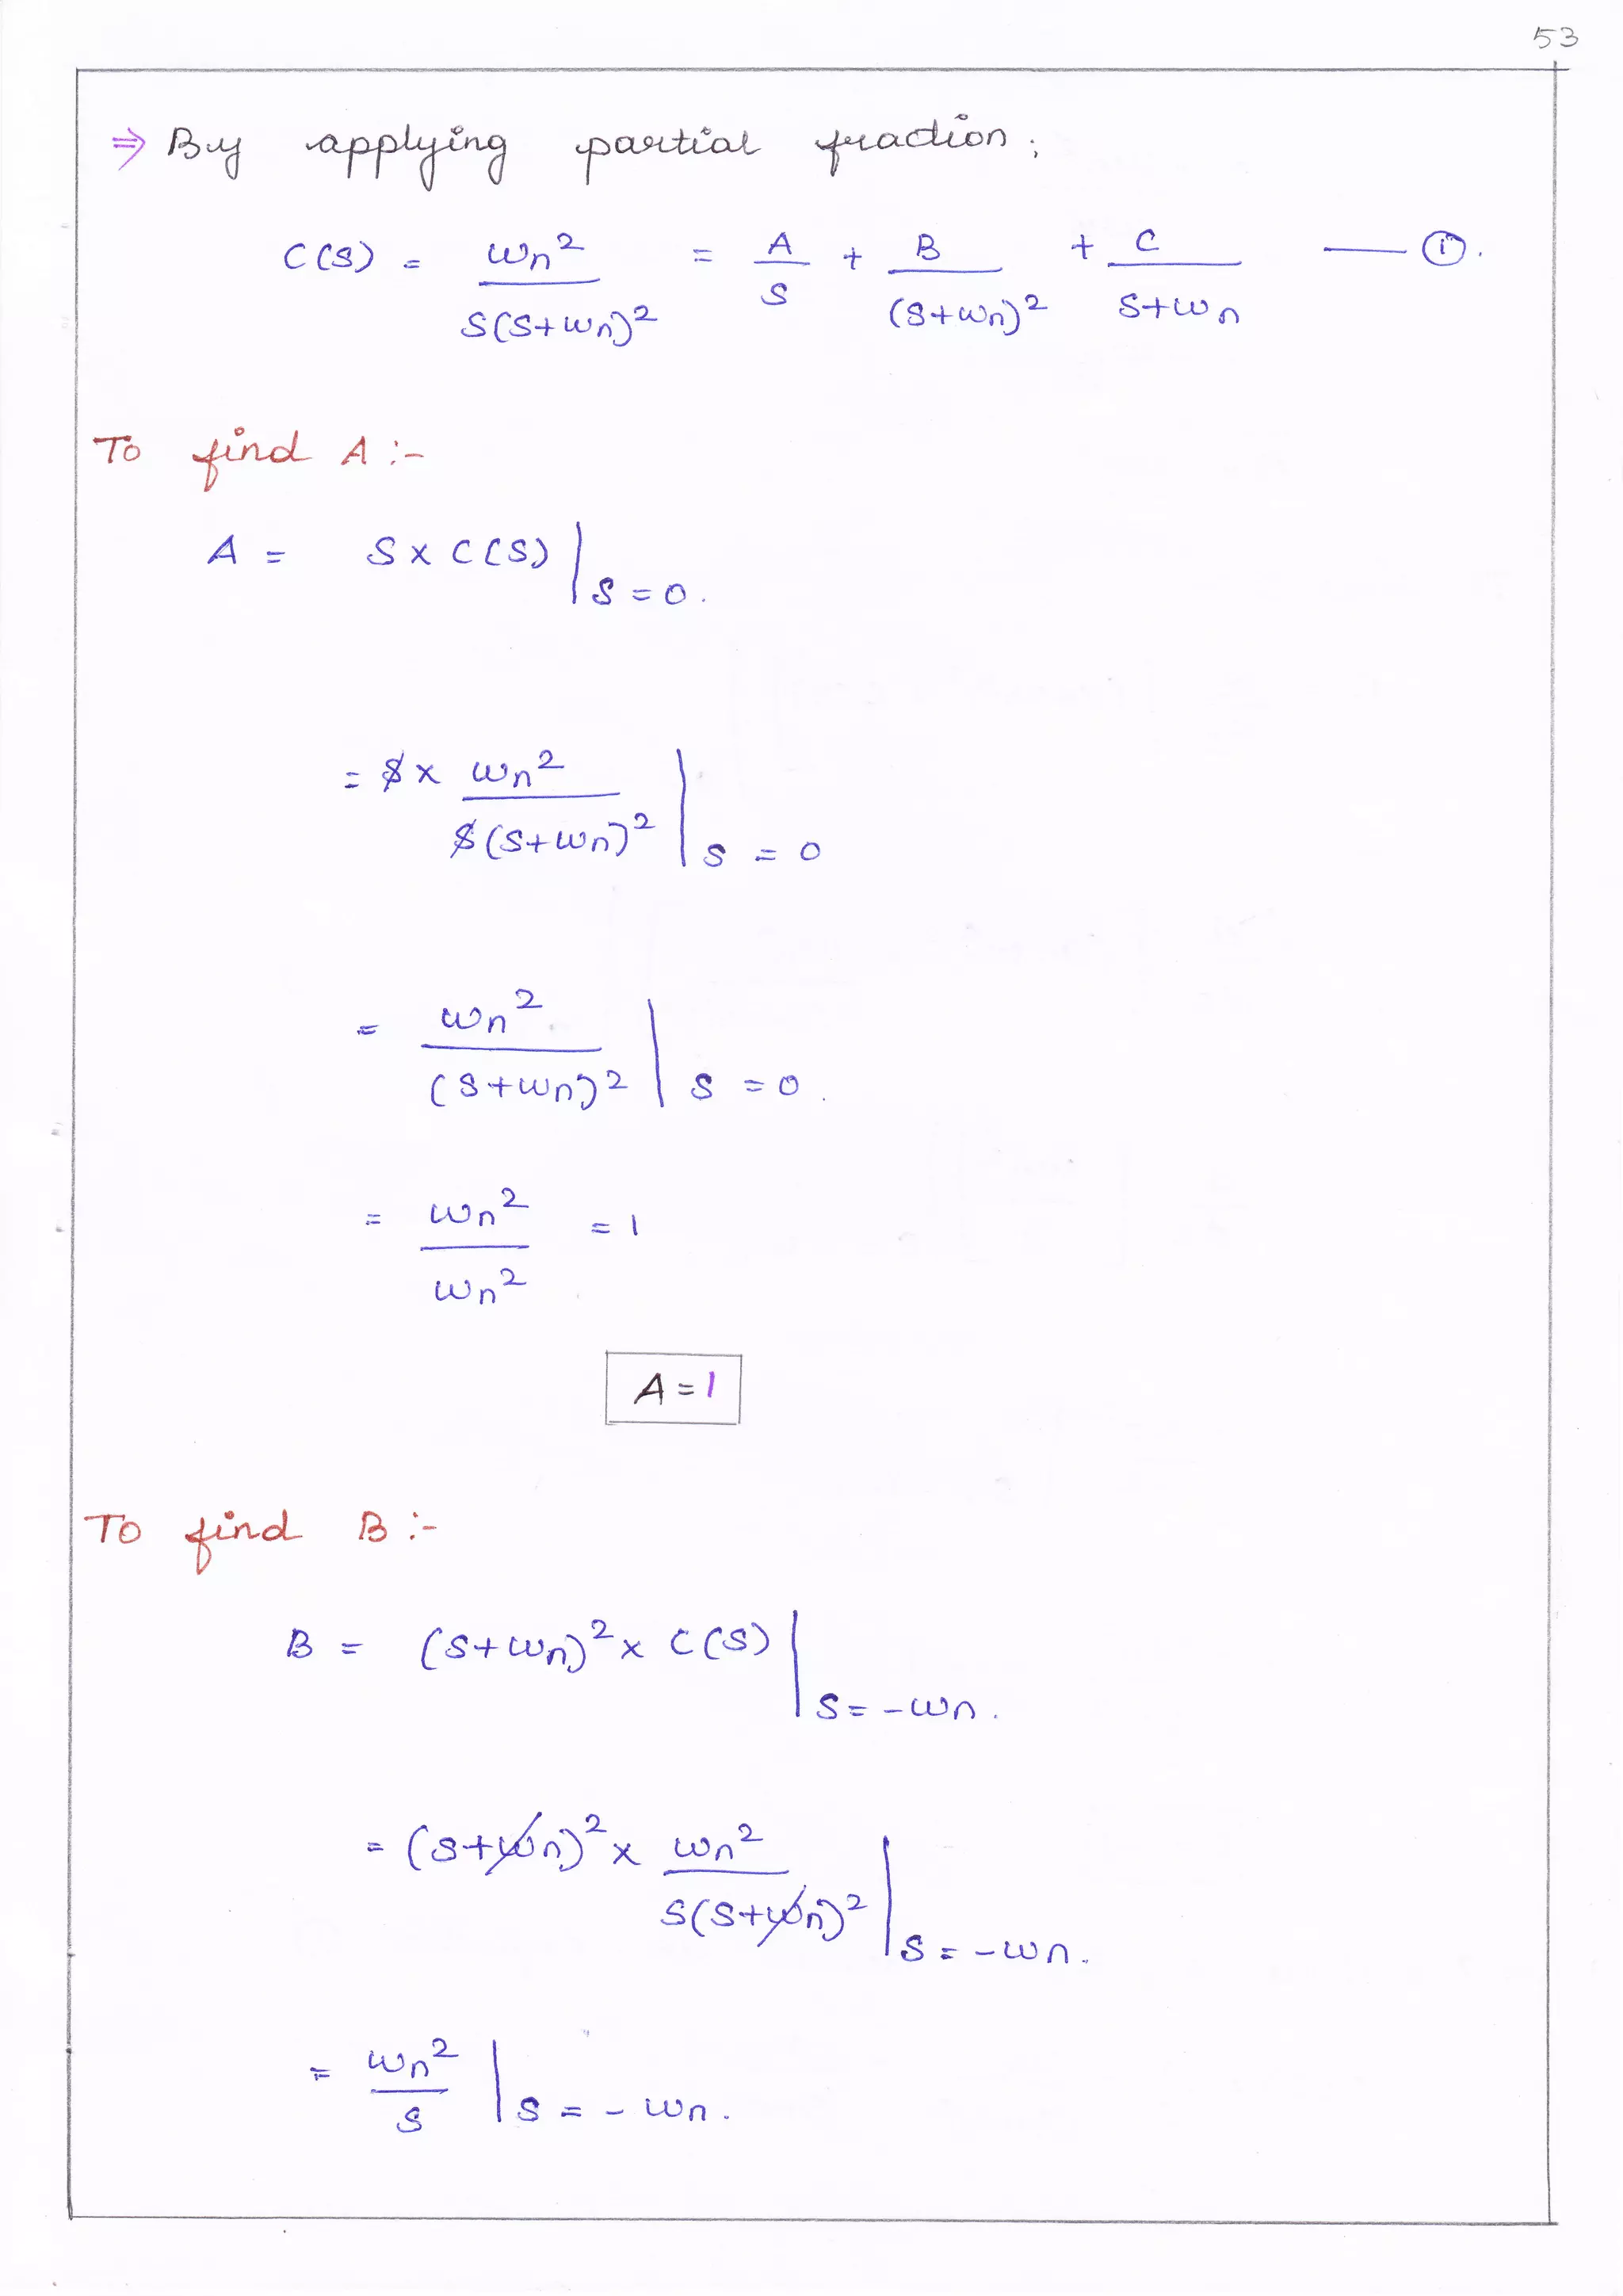 53
⇒ By applying partial fraction;
C(S) = ωn² / S(S+ωn)² = A/S + B/(S+ωn)² + C/S+ωn —— ①.
To find A :-
A = S x C(S) | S=0.
= S x ωn² / S(S+ωn)² | S = 0
= ωn² / (S+ωn)² | S = 0.
= ωn² / ωn² = 1
A = 1
To find B :-
B = (S+ωn)² x C(S) | S = -ωn.
= (S+ωn)² x ωn² / S(S+ωn)² | S = -ωn.
= ωn² / S | S = - ωn.